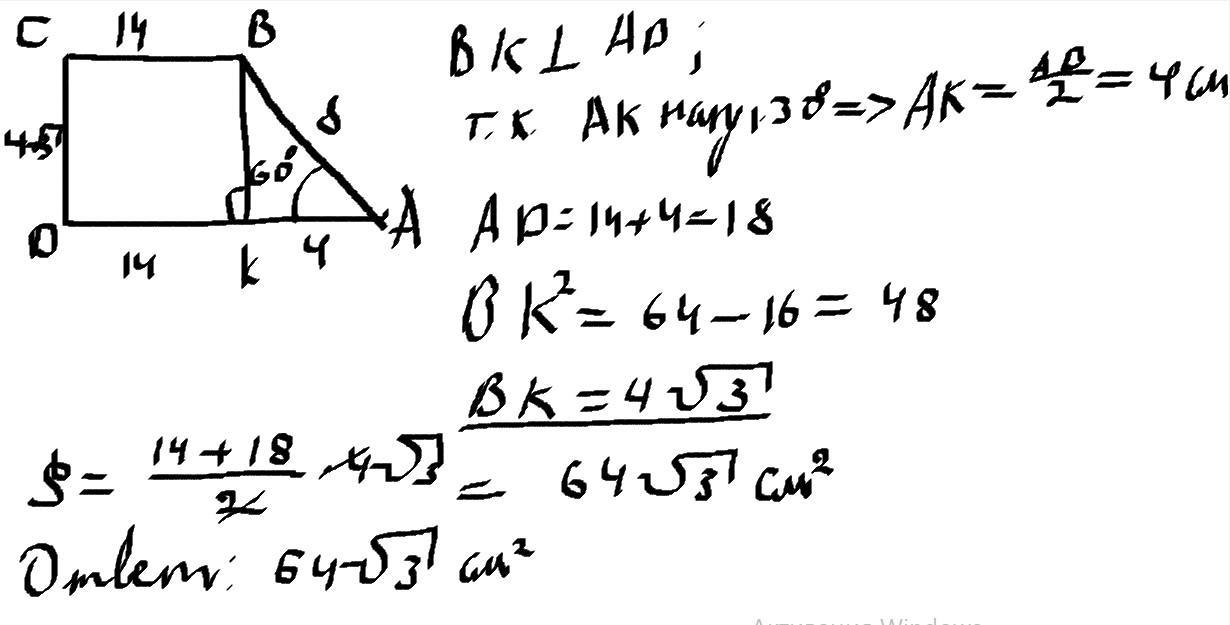 C 14 B
8
4√3
60°
D 14 K 4 A
BK ⊥ AD;
т.к. AK напр. 30° => AK = AB/2 = 4 см
AD = 14 + 4 = 18
BK² = 64 - 16 = 48
BK = 4√3
S = 14 + 18 / 2 · 4√3 = 64√3 см²
Ответ: 64√3 см²